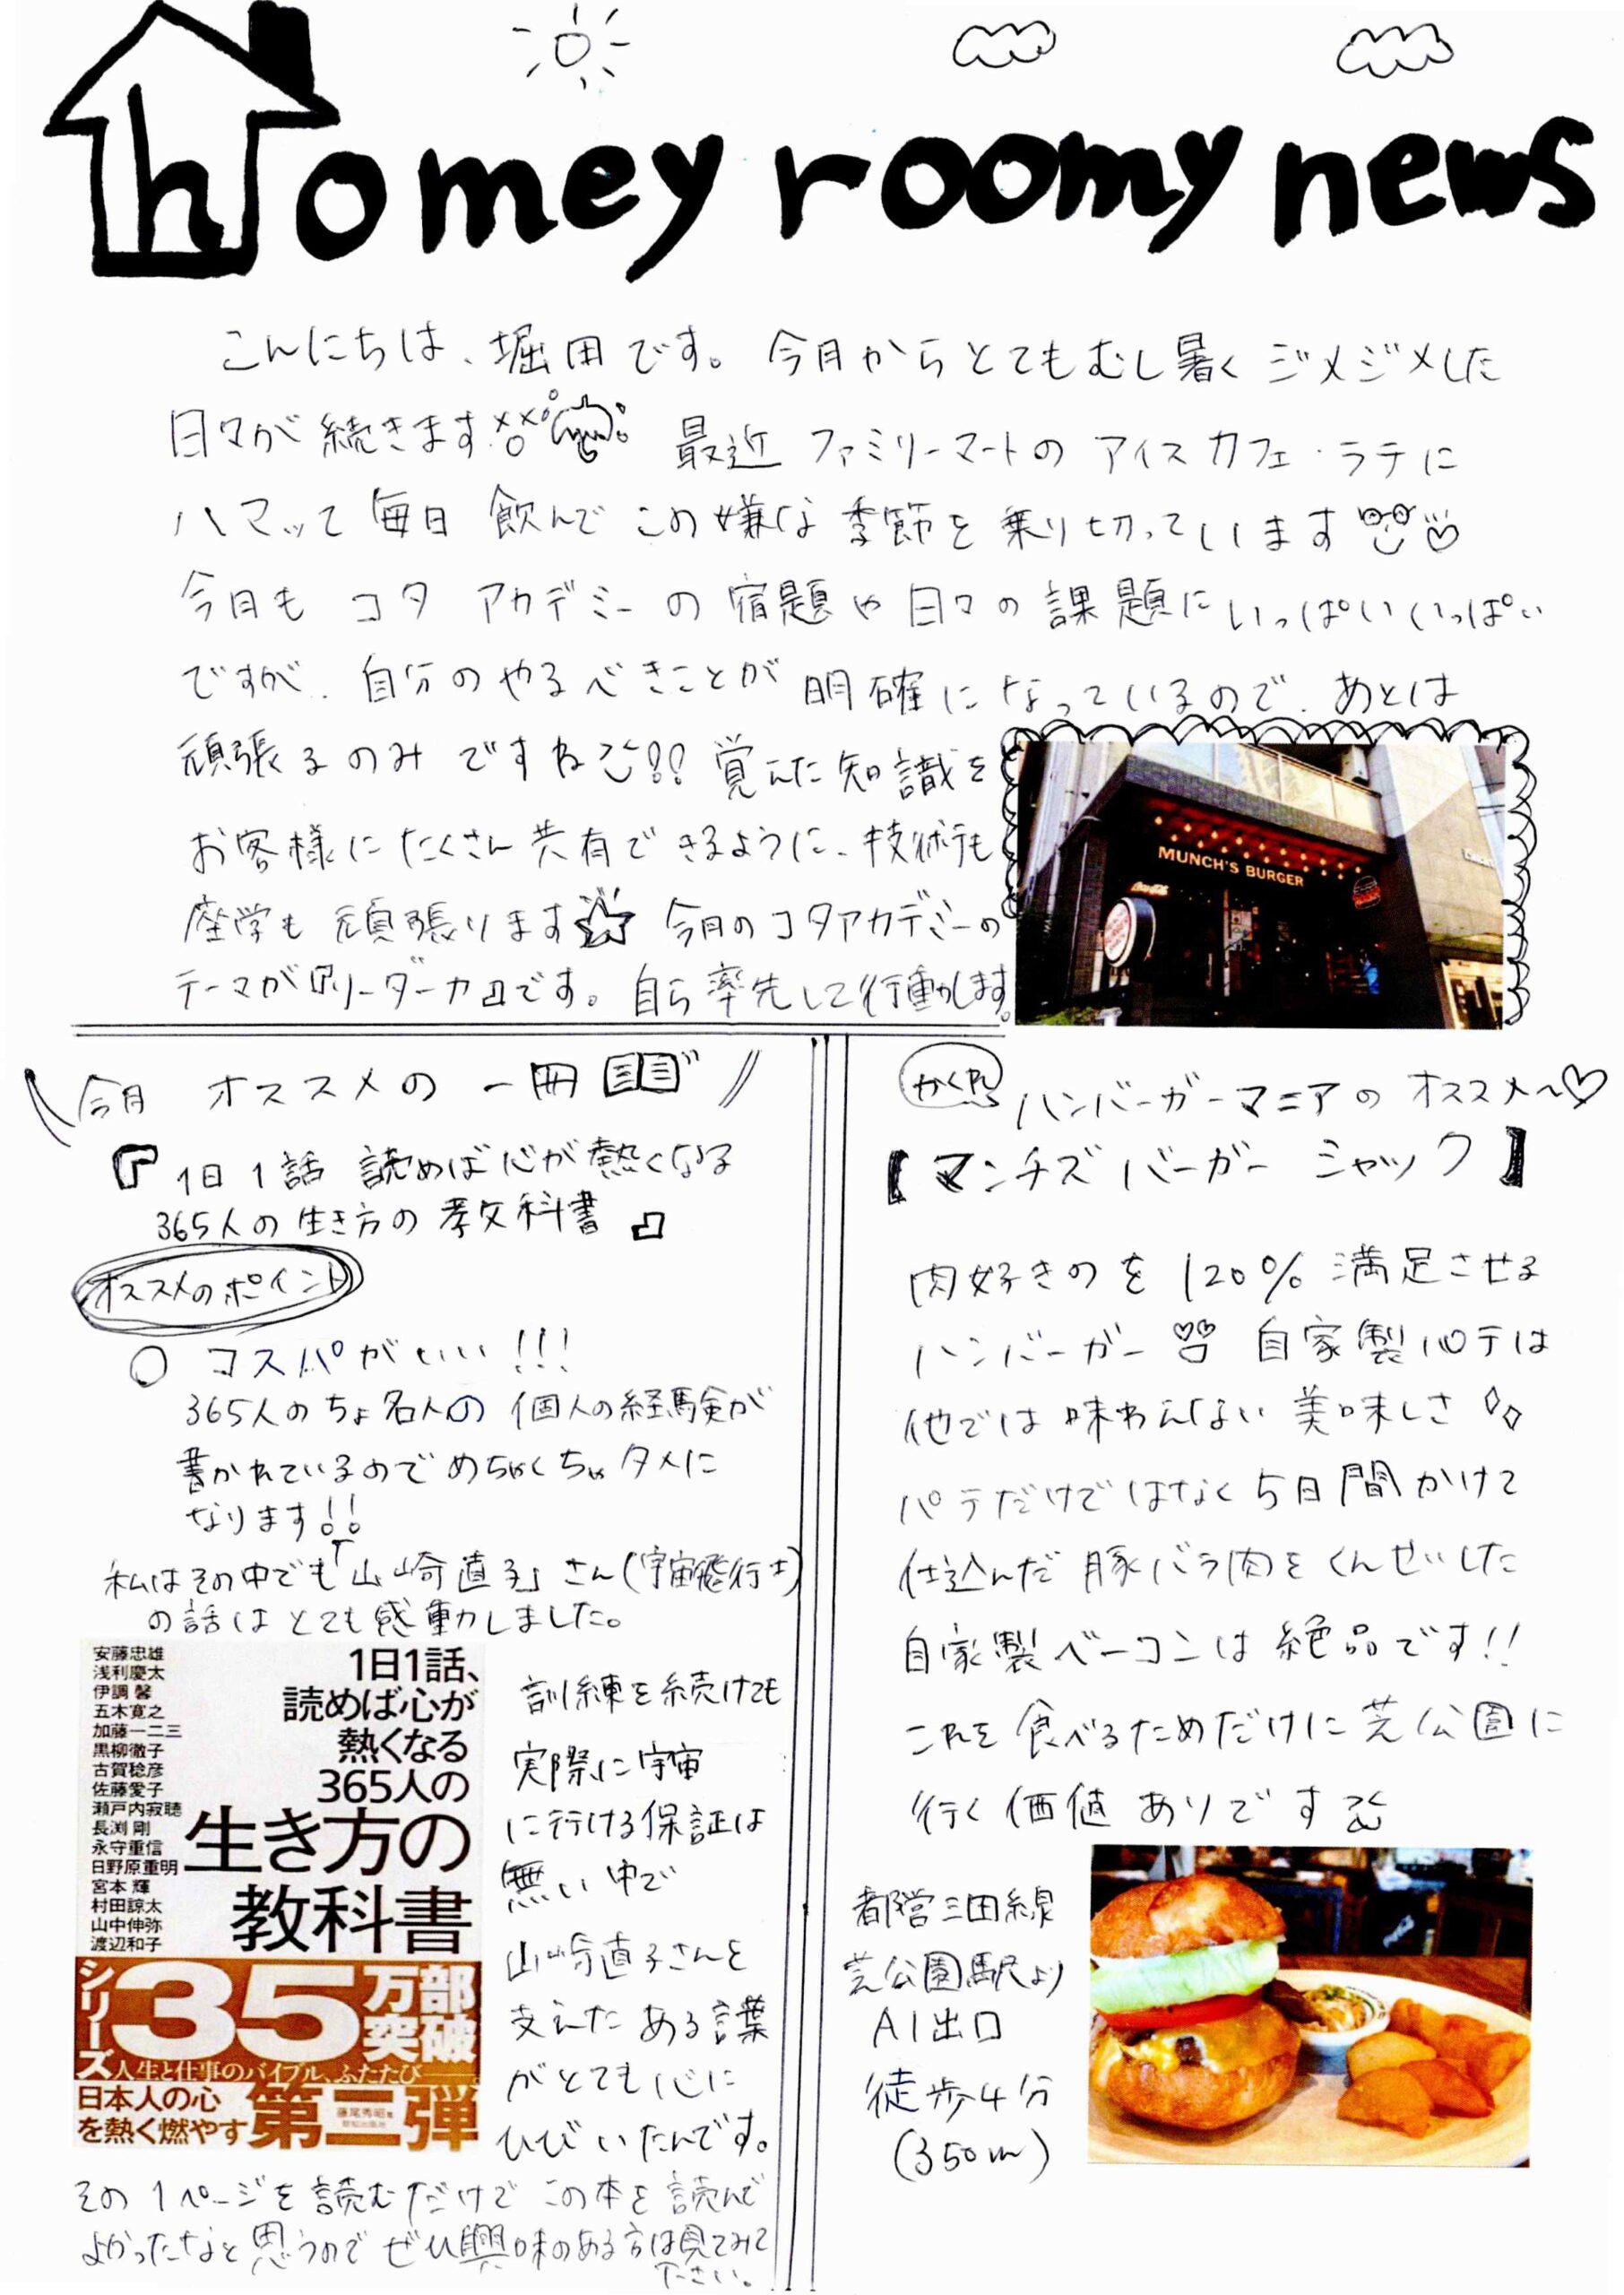 homey roomy news
こんにちは、堀田です。今月からとてもむし暑くジメジメした
日々が続きます 最近ファミリーマートのアイスカフェ・ラテに
ハマって毎日飲んでこの嫌な季節を乗り切っています
今月もコタアカデミーの宿題や日々の課題にいっぱいいっぱい
ですが、自分のやるべきことが明確になっているので、あとは
頑張るのみですね!! 覚えた知識を
お客様にたくさん共有できるように、技術も
座学も頑張ります☆ 今月のコタアカデミーの
テーマが『リーダーカ』です。自ら率先して行動します。
MUNCH'S BURGER
今月オススメの一冊
『1日1話 読めば心が熱くなる
365人の生き方の教科書』
オススメのポイント
○ コスパがいい!!!
365人のちょ名人の個人の経験が
書かれているのでめちゃくちゃタメに
なります!!
私はその中でも「山崎直子」さん(宇宙飛行士)
の話はとても感動しました。
安藤忠雄
浅利慶太
伊調 馨
五木寛之
加藤一二三
黒柳徹子
古賀稔彦
佐藤愛子
瀬戸内寂聴
長渕 剛
永守重信
日野原重明
宮本 輝
村田諒太
山中伸弥
渡辺和子
1日1話、
読めば心が
熱くなる
365人の
生き方の
教科書
シリーズ35万部突破
人生と仕事のバイブル、ふたたび
日本人の心
を熱く燃やす第二弾
藤尾秀昭
訓練を続けても
実際に宇宙
に行ける保証は
無い中で
山崎直子さんを
支えたある言葉
がとても心に
ひびいたんです。
その1ページを読むだけでこの本を読んで
よかったなと思うのでぜひ興味のある方は見てみて
下さい。
かくれ ハンバーガーマニアのオススメ〜♡
【マンチズバーガー シャック】
肉好きのを120%満足させる
ハンバーガー 自家製パテは
他では味わえない美味しさ
パテだけではなく5日間かけて
仕込んだ豚バラ肉をくんせいした
自家製ベーコンは絶品です!!
これを食べるためだけに芝公園に
行く価値ありです
都営三田線
芝公園駅より
A1出口
徒歩4分
(350m)